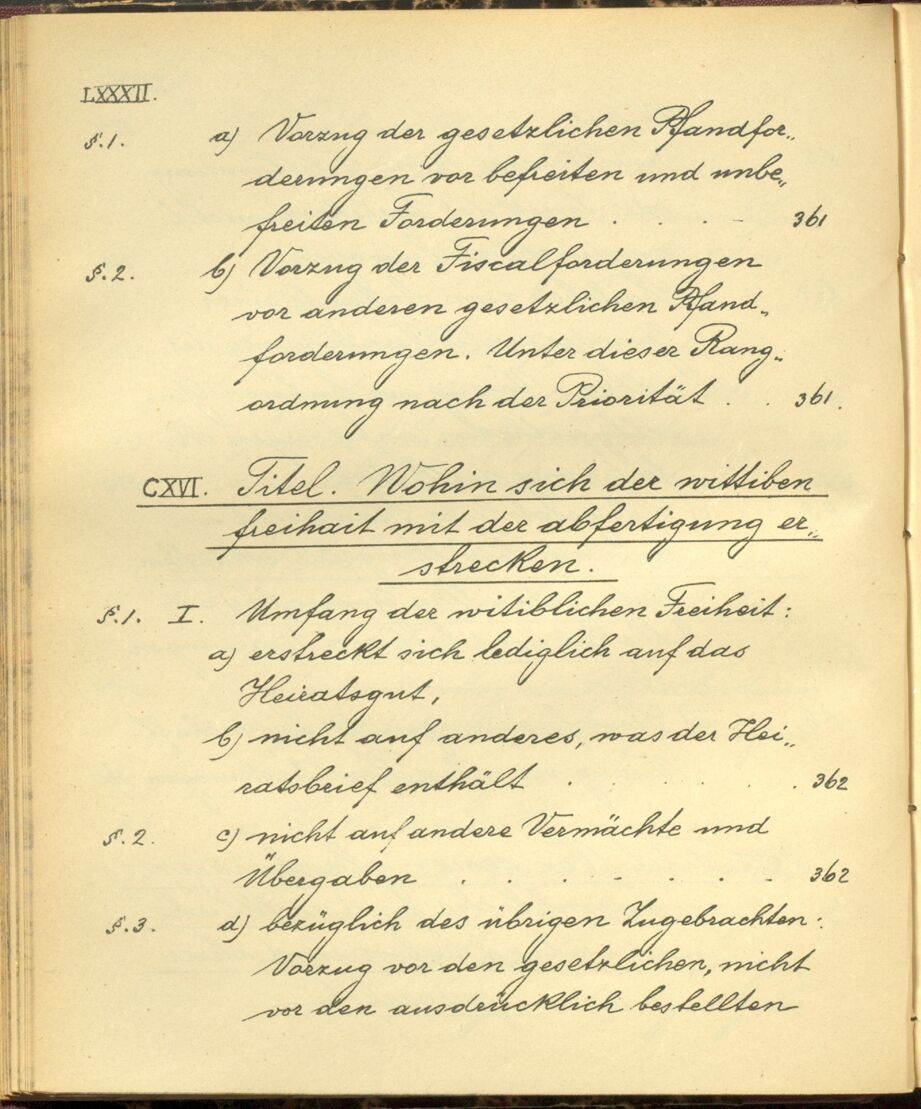 LXXXII.
§.1. a) Vorzug der gesetzlichen Pfandfor„
derungen vor befreiten und unbe„
freiten Forderungen . . . . 361
§.2. b) Vorzug der Fiscalforderungen
vor anderen gesetzlichen Pfand„
forderungen. Unter dieser Rang„
ordnung nach der Priorität . . 361.
CXVI. Titel. Wohin sich der wittiben
freihait mit der abfertigung er„
strecken.
§.1. I. Umfang der witiblichen Freiheit:
a) erstreckt sich lediglich auf das
Heiratsgut,
b) nicht auf anderes, was der Hei„
ratsbrief enthält . . . . . 362
§.2. c) nicht auf andere Vermächte und
Übergaben . . . . . . . . 362
§.3. d) bezüglich des übrigen Zugebrachten:
Vorzug vor den gesetzlichen, nicht
vor den ausdrücklich bestellten